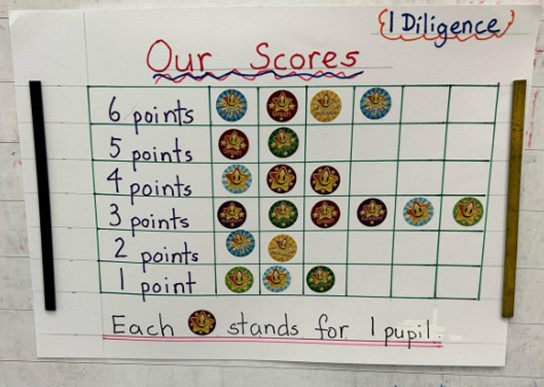 1 Diligence
Our Scores
6 points
5 points
4 points
3 points
2 points
1 point
Each stands for 1 pupil.